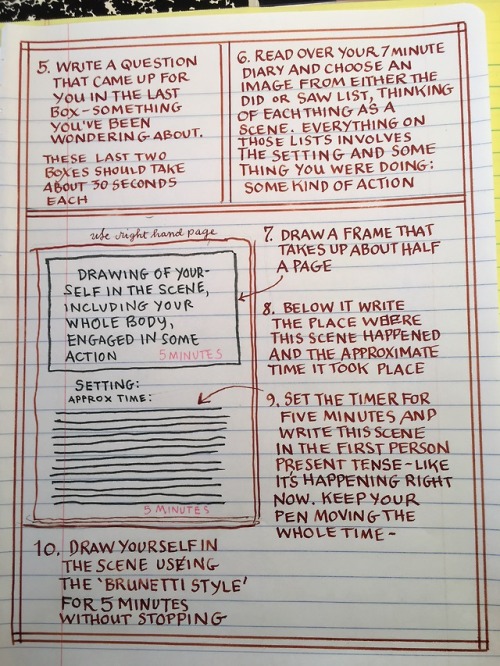 5. WRITE A QUESTION
THAT CAME UP FOR
YOU IN THE LAST
BOX - SOMETHING
YOU'VE BEEN
WONDERING ABOUT.
THESE LAST TWO
BOXES SHOULD TAKE
ABOUT 30 SECONDS
EACH
6. READ OVER YOUR 7 MINUTE
DIARY AND CHOOSE AN
IMAGE FROM EITHER THE
DID OR SAW LIST, THINKING
OF EACH THING AS A
SCENE. EVERYTHING ON
THOSE LISTS INVOLVES
THE SETTING AND SOME
THING YOU WERE DOING:
SOME KIND OF ACTION
use right hand page
DRAWING OF YOUR-
SELF IN THE SCENE,
INCLUDING YOUR
WHOLE BODY,
ENGAGED IN SOME
ACTION 5 MINUTES
SETTING:
APPROX TIME:
5 MINUTES
7. DRAW A FRAME THAT
TAKES UP ABOUT HALF
A PAGE
8. BELOW IT WRITE
THE PLACE WHERE
THIS SCENE HAPPENED
AND THE APPROXIMATE
TIME IT TOOK PLACE
9. SET THE TIMER FOR
FIVE MINUTES AND
WRITE THIS SCENE
IN THE FIRST PERSON
PRESENT TENSE - LIKE
IT'S HAPPENING RIGHT
NOW. KEEP YOUR
PEN MOVING THE
WHOLE TIME -
10. DRAW YOURSELF IN
THE SCENE USING
THE 'BRUNETTI STYLE'
FOR 5 MINUTES
WITHOUT STOPPING